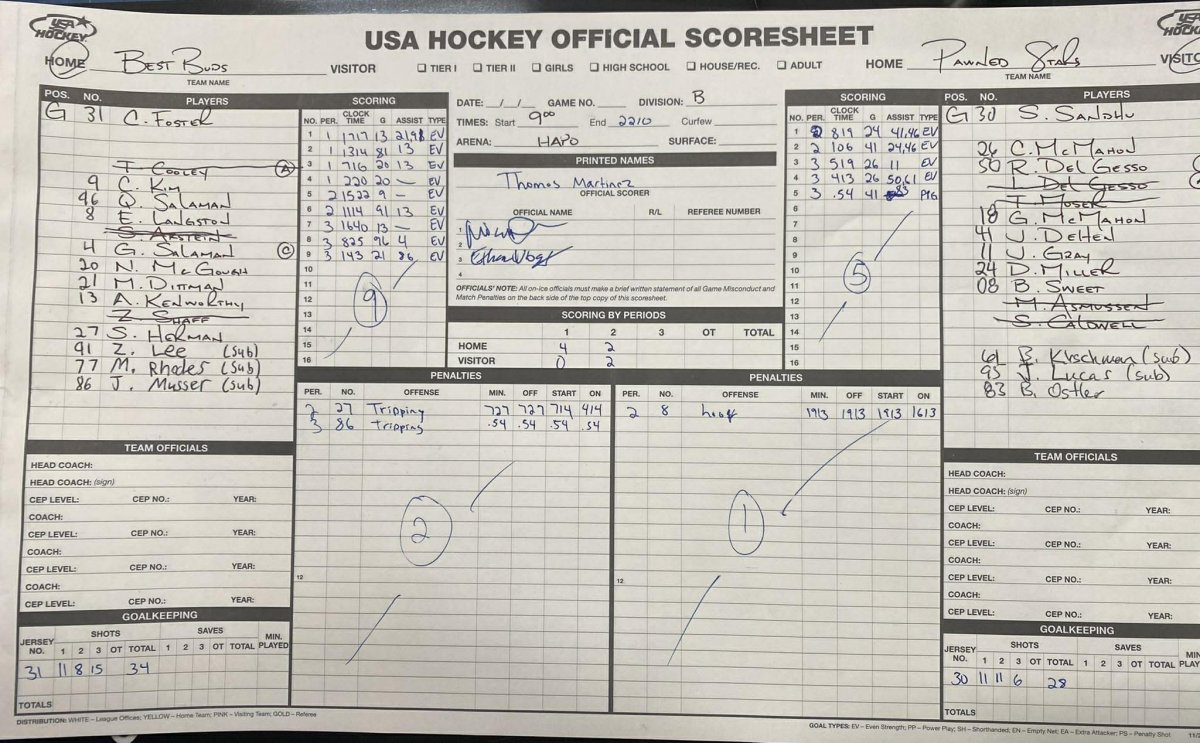 USA HOCKEY
USA HOCKEY OFFICIAL SCORESHEET
USA HOCKEY
HOME BEST BUDS VISITOR
TEAM NAME
TIER I TIER II GIRLS HIGH SCHOOL HOUSE/REC. ADULT
HOME PAWNED STARS VISITOR
TEAM NAME
POS. NO. PLAYERS
G 31 C. FOSTER
T. COOLEY A
9 C. KIM
96 Q. SALAMAN
8 E. LANGSTON
S. ARSTEIN
4 G. SALAMAN C
20 N. McGOUGH
21 M. DITTMAN
13 A. KENWORTHY
Z. SHAFF
27 S. HERMAN
91 Z. Lee (sub)
77 M. Rhodes (sub)
86 J. Musser (sub)
SCORING
NO. PER. CLOCK TIME G ASSIST TYPE
1 1 1717 13 21 91 EV
2 1 1314 81 13 EV
3 1 716 20 13 EV
4 1 220 20 — EV
5 2 1522 9 — EV
6 2 1114 91 13 EV
7 3 1640 13 — EV
8 3 825 96 4 EV
9 3 143 21 86 EV
10
11
12
13
14
15
16
9
DATE: __/__/__ GAME NO. DIVISION: B
TIMES: Start 9:00 End 2210 Curfew
ARENA: HAPO SURFACE:
PRINTED NAMES
Thomas Martinez
OFFICIAL SCORER
OFFICIAL NAME R/L REFEREE NUMBER
1
2
3 Ethan Vogt
4
OFFICIALS' NOTE: All on-ice officials must make a brief written statement of all Game Misconduct and
Match Penalties on the back side of the top copy of this scoresheet.
SCORING BY PERIODS
1 2 3 OT TOTAL
HOME 4 2
VISITOR 0 2
SCORING
NO. PER. CLOCK TIME G ASSIST TYPE
1 2 819 24 41,46 EV
2 2 106 41 24,46 EV
3 3 519 26 11 EV
4 3 413 26 50,61 EV
5 3 .54 41 83
6
7
8
9
10
11
12
13
14
15
16
5
POS. NO. PLAYERS
G 30 S. SANDHU
26 C. McMAHON
50 R. DEL GESSO
L. DEL GESSO
T. MOSER
18 G. McMAHON
41 J. DEHEN
11 J. GRAY
24 D. MILLER
08 B. SWEET
M. ASMUSSEN
S. CALDWELL
61 B. Kirschman (sub)
95 J. Lucas (sub)
83 B. Ostler
PENALTIES
PER. NO. OFFENSE MIN. OFF START ON
2 27 Tripping 727 727 714 414
3 86 Tripping .54 .54 .54 .54
2
12
PENALTIES
PER. NO. OFFENSE MIN. OFF START ON
2 8 hook 1913 1913 1913 1613
1
12
TEAM OFFICIALS
HEAD COACH:
HEAD COACH: (sign)
CEP LEVEL: CEP NO.: YEAR:
COACH:
CEP LEVEL: CEP NO.: YEAR:
COACH:
CEP LEVEL: CEP NO.: YEAR:
COACH:
CEP LEVEL: CEP NO.: YEAR:
GOALKEEPING
JERSEY NO. SHOTS SAVES MIN. PLAYED
1 2 3 OT TOTAL 1 2 3 OT TOTAL
31 11 8 15 34
TOTALS
TEAM OFFICIALS
HEAD COACH:
HEAD COACH: (sign)
CEP LEVEL: CEP NO.: YEAR:
COACH:
CEP LEVEL: CEP NO.: YEAR:
COACH:
CEP LEVEL: CEP NO.: YEAR:
COACH:
CEP LEVEL: CEP NO.: YEAR:
GOALKEEPING
JERSEY NO. SHOTS SAVES MIN PLAY
1 2 3 OT TOTAL 1 2 3 OT TOTAL
30 11 11 6 28
TOTALS
DISTRIBUTION: WHITE – League Offices; YELLOW – Home Team; PINK – Visiting Team; GOLD – Referee
GOAL TYPES: EV – Even Strength; PP – Power Play; SH – Shorthanded; EN – Empty Net; EA – Extra Attacker; PS – Penalty Shot